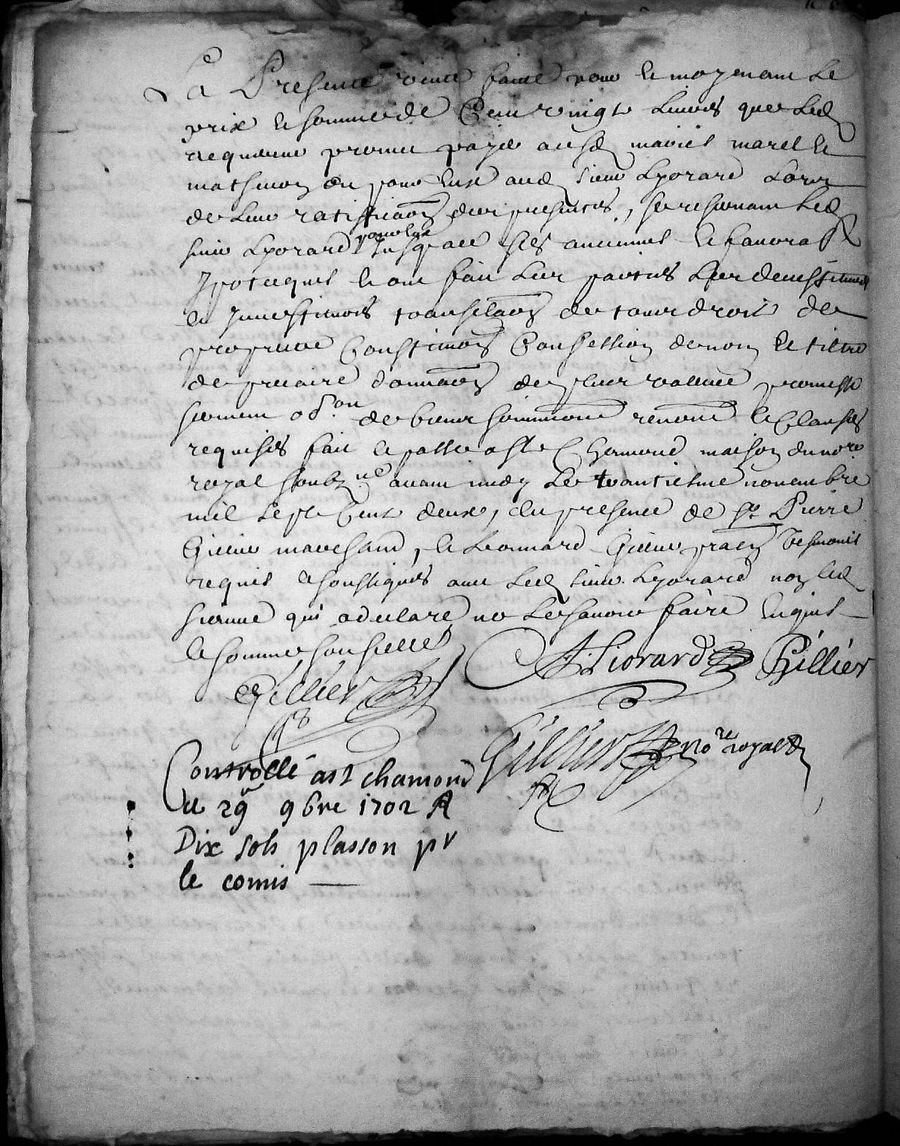 La Presente vente faite pour et moyenant le
prix et somme de Cent vingt livres que led
promis payer aud mariés marel et
mathevon ou pour eux aud sieur Lyorard Lors
de leur ratiffica͠on des presentes, se reservant led
sieur Lyorard pour luy jusqu'a ses anciennes et favora
Ypoteques et ont fait les parties Les devestitures
et Investitures translaons de tous droits de
proprieté Constitu͠ons Confession de nom et tiltre
de precaire dona͠ons de plus vallue promesse
serment o͠b͠on de biens soumissions renon et Clauses
requises fait et passé a St Chamond maison du nore
royal soubz né avant midy Le trantiesme novembre
mil sept Cent deux, en presence de Sr Pierre
Gillier marchand, et Leonnard Gillier praen Tesmoins
requis et soussignés avec Led sieur Lyorard non led
qui a declaré ne le sçavoir faire enquis
et sommé
Gillier Liorard Gillier
Gillier no.re royal
Controllé a st chamond
le 29e 9bre 1702 R
Dix sols plasson pr
le comis